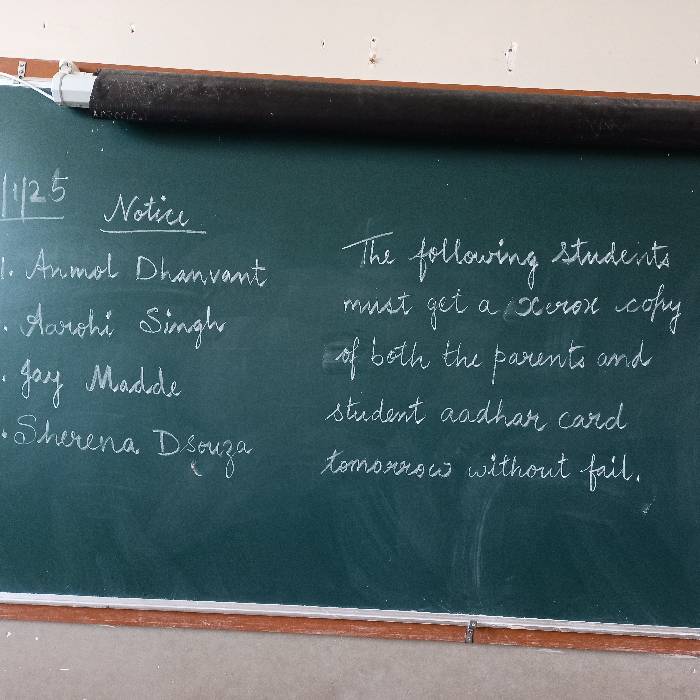 /1/25
Notice
1. Anmol Dhanvant
. Aarohi Singh
. Jay Madde
. Sherena Dsouza
The following students
must get a xerox copy
of both the parents and
student aadhar card
tomorrow without fail.